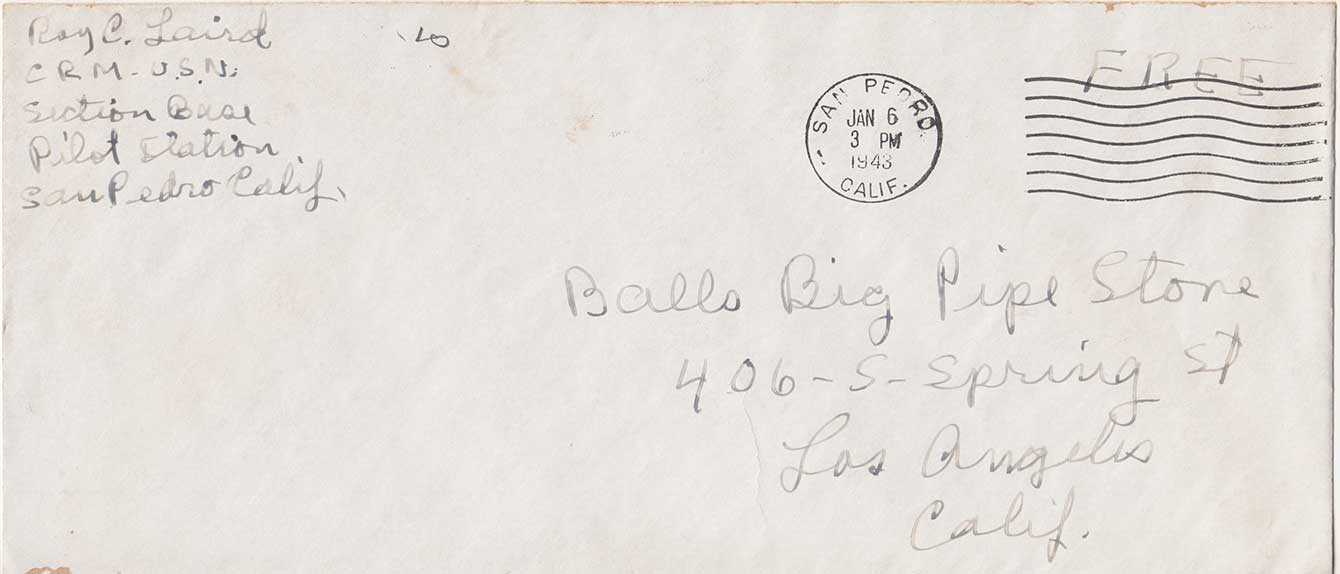 Roy C. Laird
C R M - U.S.N.
Section Base
Pilot Station
San Pedro Calif.
SAN PEDRO
JAN 6
3 PM
1943
CALIF.
FREE
Balls Big Pipe Stone
406-S-Spring St
Los Angeles
Calif.